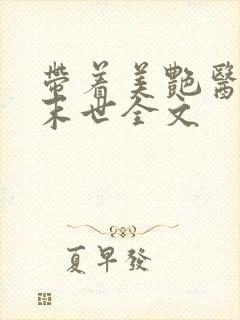 帶着美艷醫
末世全文
夏早發